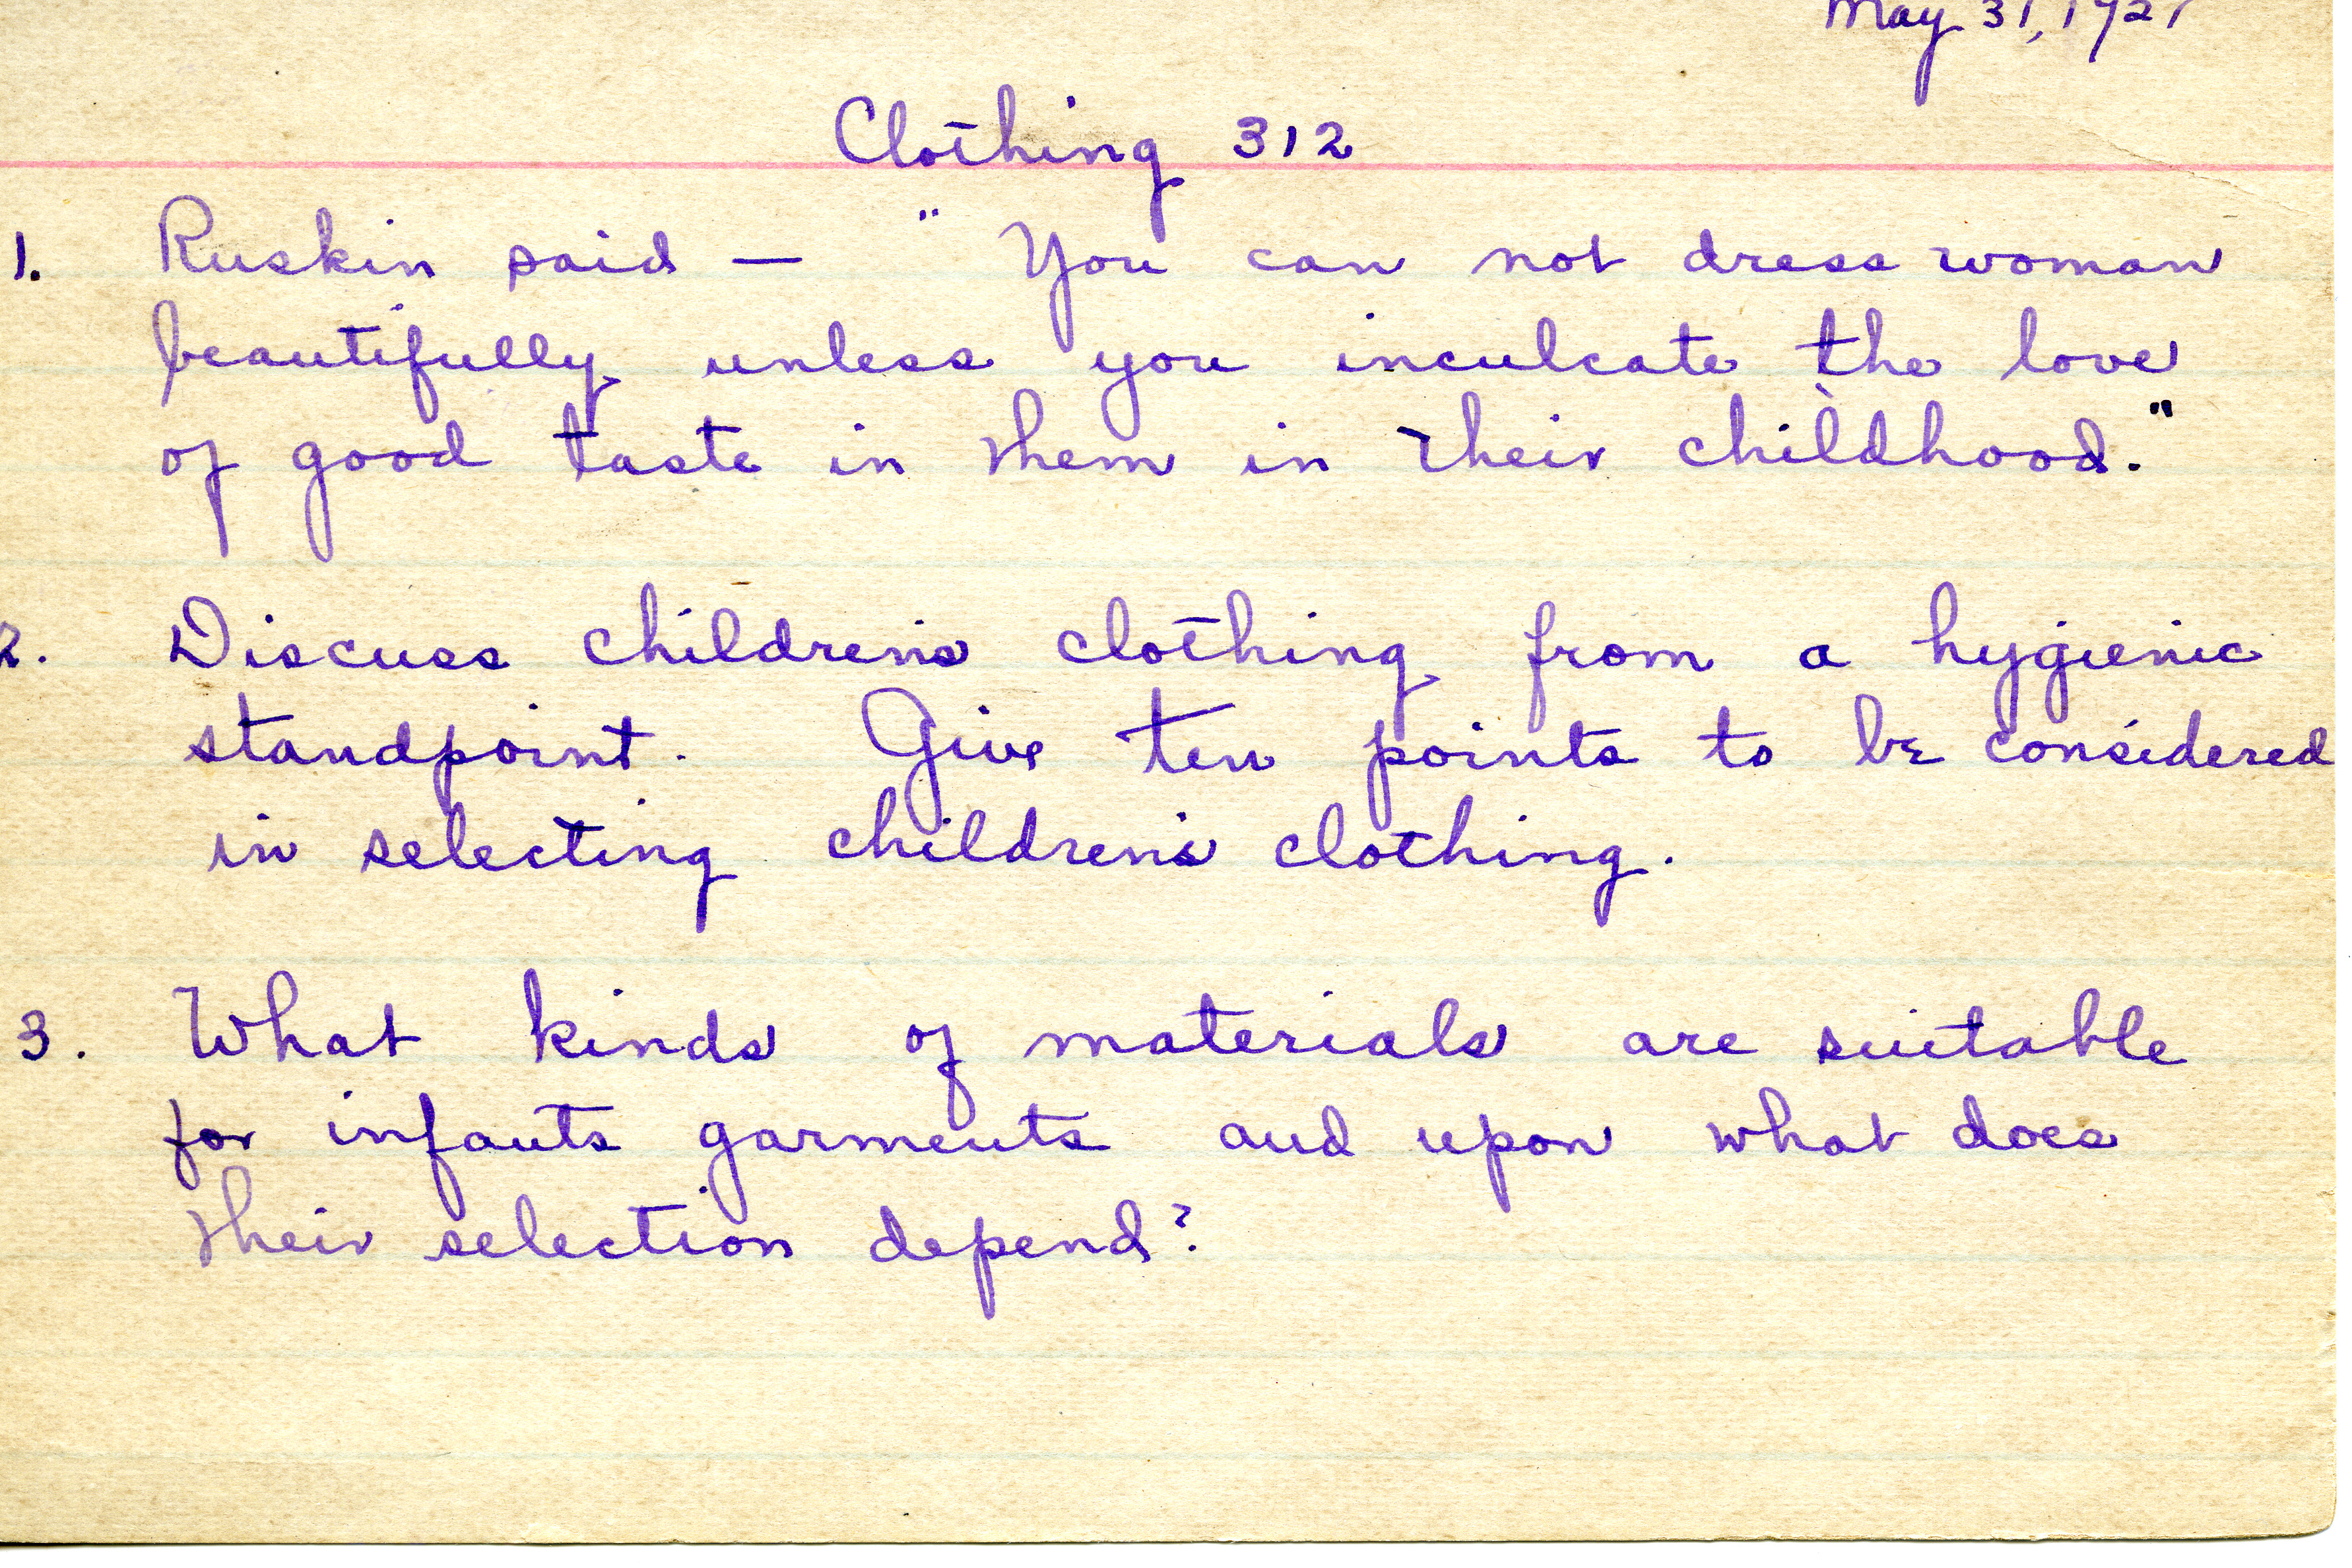 May 31, 1921
Clothing 312
1. Ruskin said — "You can not dress woman
beautifully unless you inculcate the love
of good taste in them in their childhood."
2. Discuss children's clothing from a hygienic
standpoint. Give ten points to be considered
in selecting children's clothing.
3. What kinds of materials are suitable
for infants garments and upon what does
their selection depend?